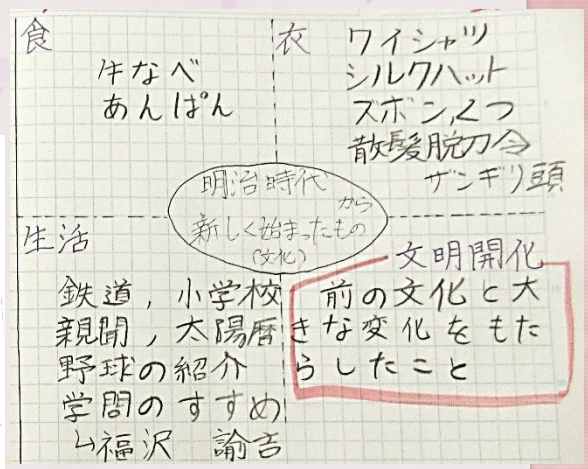 食
牛なべ
あんぱん
衣
ワイシャツ
シルクハット
ズボン,くつ
散髪脱刀令
ザンギリ頭
明治時代
から
新しく始まったもの
(文化)
生活
鉄道,小学校
親聞,太陽暦
野球の紹介
学問のすすめ
↳福沢 諭吉
文明開化
前の文化と大
きな変化をもた
らしたこと